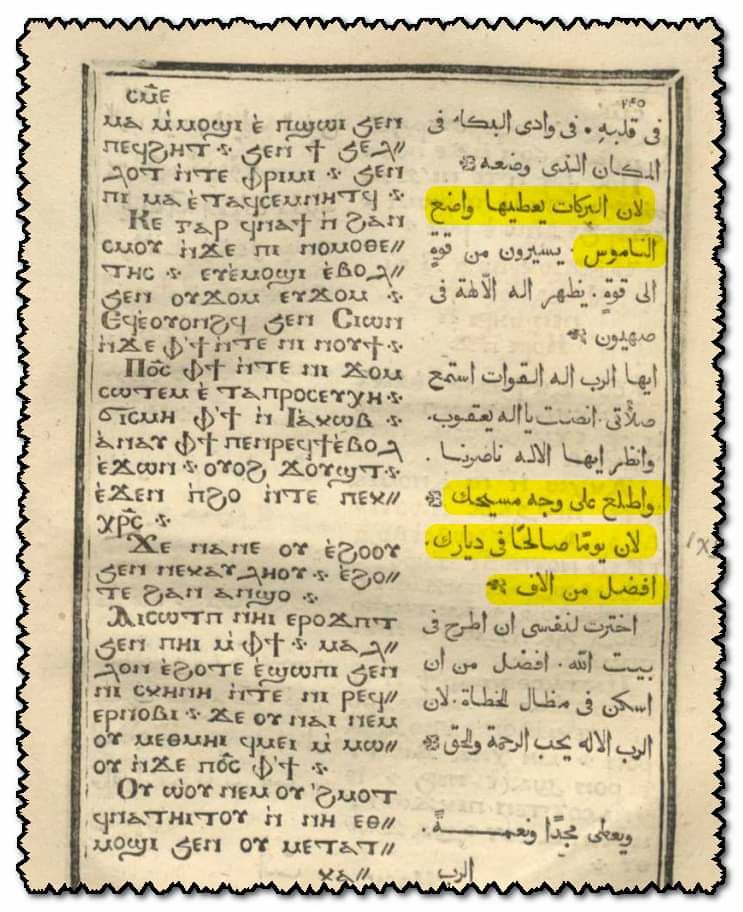 ⲥⲙ̅ⲉ
ⲙⲁ ⲙ̀ⲙⲟϣⲓ ⲉ̀ ⲡϣⲱⲓ ϧⲉⲛ
ⲡⲉϥϩⲏⲧ ⳾ ϧⲉⲛ ϯ ϧⲉⲗ//
ⲗⲟⲧ ⲛ̀ⲧⲉ ⲫⲣⲓⲙⲓ ⳾ ϧⲉⲛ
ⲡⲓ ⲙⲁ ⲉ̀ⲧⲁϥⲥⲉⲙⲛⲏⲧϥ ⳾
Ⲕⲉ ⲅⲁⲣ ϥⲛⲁϯ ⲛ̀ ϩⲁⲛ
ⲥⲙⲟⲩ ⲛ̀ϫⲉ ⲡⲓ ⲛⲟⲙⲟⲑⲉ//
ⲧⲏⲥ ⳾ ⲉⲩⲉ̀ⲙⲟϣⲓ ⲉ̀ⲃⲟⲗ//
ϧⲉⲛ ⲟⲩϫⲟⲙ ⲉⲩϫⲟⲙ ⳾
Ⲉϥⲉⲟⲩⲟⲛϩϥ ϧⲉⲛ Ⲥⲓⲱⲛ
ⲛ̀ϫⲉ ⲫ̀ϯ ⲛ̀ⲧⲉ ⲛⲓ ⲛⲟⲩϯ ⳾
Ⲡⲟ̅ⲥ ⲫ̀ϯ ⲛ̀ⲧⲉ ⲛⲓ ϫⲟⲙ
ⲥⲱⲧⲉⲙ ⲉ̀ ⲧⲁⲡⲣⲟⲥⲉⲩⲭⲏ ⳾
ϭⲓⲥⲙⲏ ⲫ̀ϯ ⲛ̀ Ⲓⲁⲕⲱⲃ ⳾
ⲁⲛⲁⲩ ⲫ̀ϯ ⲡⲉⲛⲣⲉϥϯⲉ̀ⲃⲟⲗ
ⲉ̀ϫⲱⲛ ⳾ ⲟⲩⲟϩ ϫⲟⲩϣⲧ ⳾
ⲉ̀ϫⲉⲛ ⲡ̀ϩⲟ ⲛ̀ⲧⲉ ⲡⲉⲕⲭ//
ⲭⲣ̅ⲥ ⳾
Ϫⲉ ⲛⲁⲛⲉ ⲟⲩ ⲉ̀ϩⲟⲟⲩ
ϧⲉⲛ ⲛⲉⲕⲁⲩⲗⲏⲟⲩ ⳾ ⲉ̀ϩⲟ//
ⲧⲉ ϩⲁⲛ ⲁⲛϣⲟ ⳾
Ⲁⲓⲥⲱⲧⲡ ⲛⲏⲓ ⲉⲣⲟϩⲡⲧ
ϧⲉⲛ ⲡⲏⲓ ⲙ̀ ⲫ̀ϯ ⳾ ⲙⲁⲗ//
ⲗⲟⲛ ⲉ̀ϩⲟⲧⲉ ⲉ̀ϣⲱⲡⲓ ϧⲉⲛ
ⲛⲓ ⲥⲕⲏⲛⲏ ⲛ̀ⲧⲉ ⲛⲓ ⲣⲉϥ//
ⲉⲣⲛⲟⲃⲓ ⳾ ϫⲉ ⲟⲩ ⲛⲁⲓ ⲛⲉⲙ
ⲟⲩ ⲙⲉⲑⲙⲏⲓ ϥⲙⲉⲓ ⲙ̀ ⲙⲱ//
ⲟⲩ ⲛ̀ϫⲉ ⲡⲟ̅ⲥ ⲫ̀ϯ ⳾
Ⲟⲩ ⲱ̀ⲟⲩ ⲛⲉⲙ ⲟⲩ ϩ̀ⲙⲟⲧ
ϥⲛⲁⲧⲏⲓⲧⲟⲩ ⲛ̀ ⲛⲏ ⲉⲑ//
ⲙⲟϣⲓ ϧⲉⲛ ⲟⲩ ⲙⲉⲧⲁⲧ//
ⲕⲁ//
٢٤٥
فى قلبهِ . فى وادى البكاء فى
المكان الذى وضعه
لان البركات يعطيها واضع
الناموس . يسيرون من قوةٍ
الى قوةٍ . يظهر اله الآلهة فى
صهيون
ايها الرب اله القوات استمع
صلاتى . انصت يا اله يعقوب .
وانظر ايها الاله ناصرنا .
واطلع على وجه مسيحك
لان يومًا صالحًا فى ديارك .
افضل من الاف
اخترت لنفسى ان اطرح فى
بيت الله . افضل من ان
اسكن فى مظال الخطاة . لان
الرب الاله يحب الرحمة والحق
ويعطى مجدًا ونعمـــــةً .
الرب